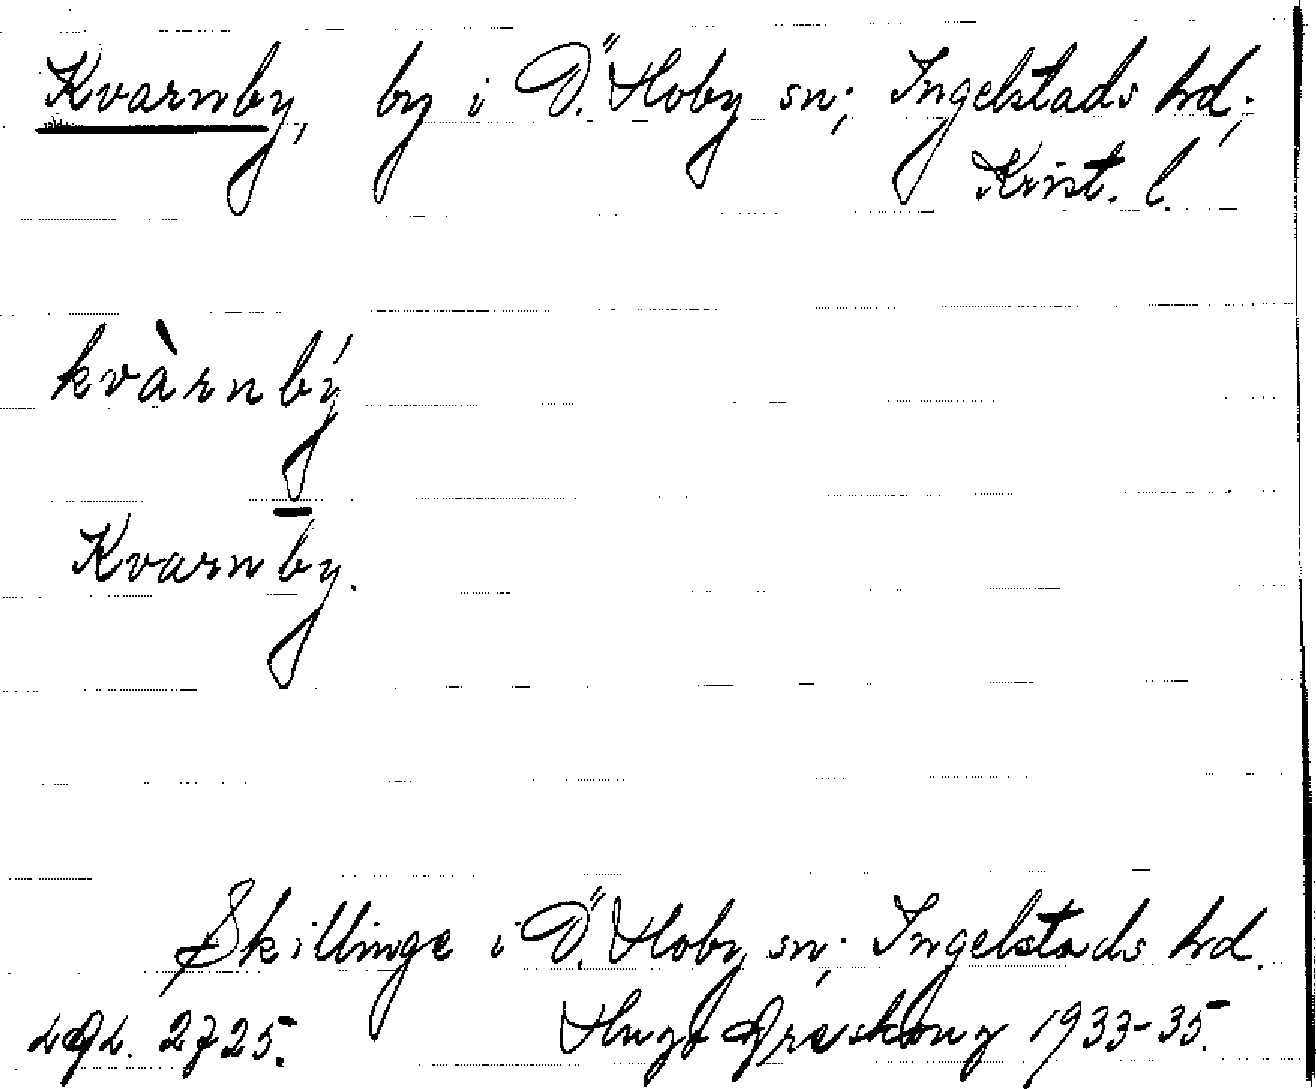 Kvarnby, by i Ö. Hoby sn; Ingelstads hd;
Krist. l.
kvàrnbý
Kvarnby.
Skillinge i Ö. Hoby sn; Ingelstads hd.
2725. Hugo 1933-35.